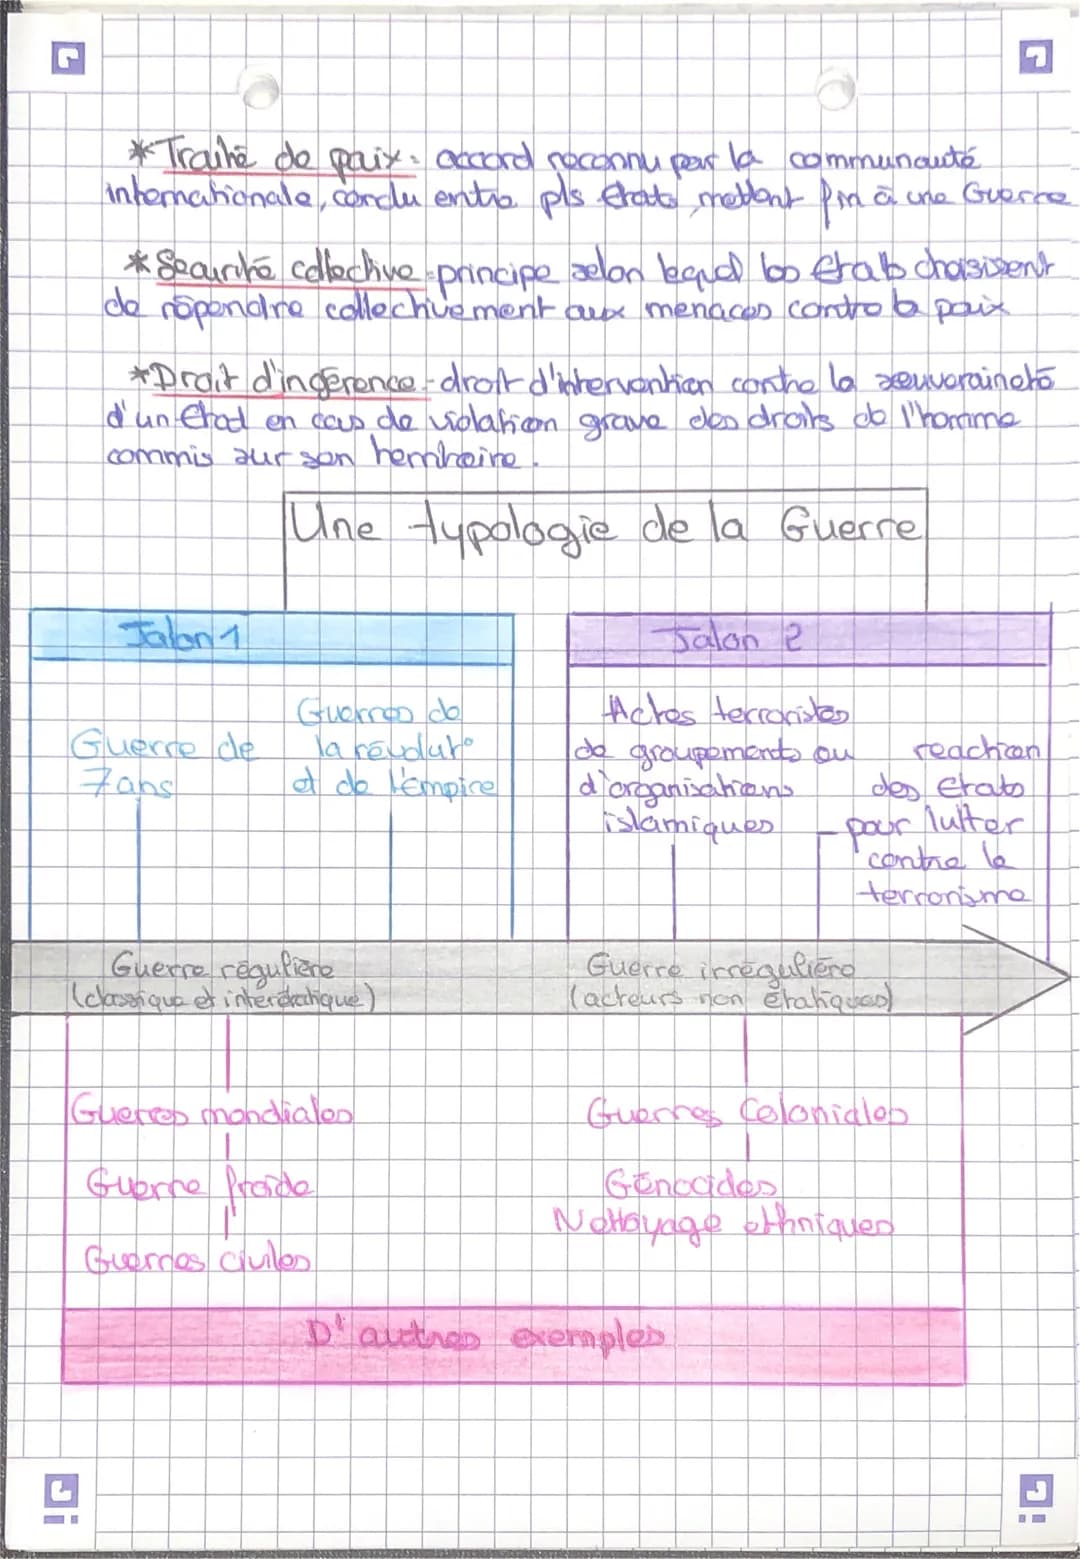 *Traité de paix: accord reconnu par la communauté
internationale, conclu entre pls états, mettant fin à une Guerre
*Securité collective-principe selon lequel les États choisissent
de répondre collectivement aux menaces contre la paix
*Droit d'ingérence-droit d'intervention contre la souveraineté
d'un État en cas de violation grave des droits de l'homme
commis sur son territoire.
Une typologie de la Guerre
Jalon 1
Guerre de
7ans
Guerres de
la révolut°
et de l'Empire
Jalon 2
Actes terroristes
de groupements ou
d'organisations
islamiques
reaction
des états
pour lutter
contre le
terrorisme
Guerre régulière
(classique et interétatique)
Guerre irrégulière
(acteurs non étatiques)
Guerres mondiales
Guerre froide
Guerres civiles
Guerres Coloniales
Génocides
Nettoyage ethniques
D'autres exemples